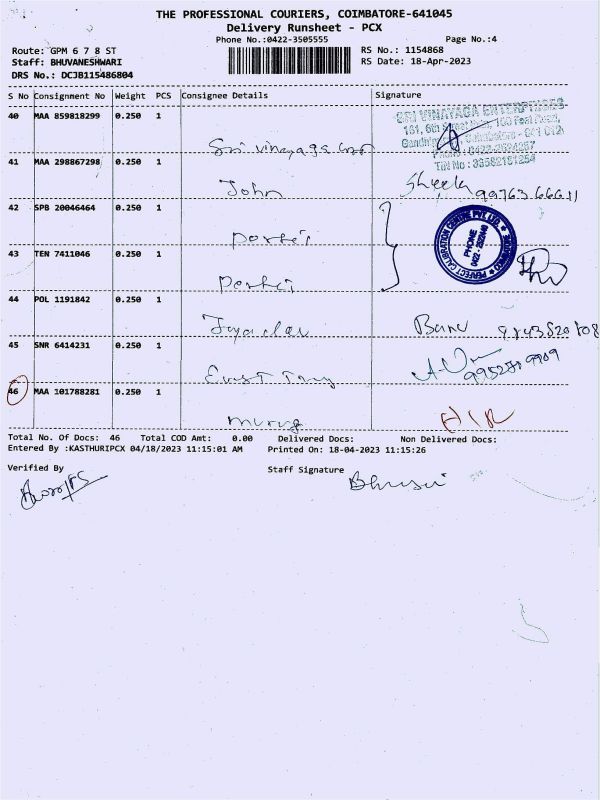 THE PROFESSIONAL COURIERS, COIMBATORE-641045
Delivery Runsheet - PCX
Phone No.:0422-3505555 Page No.:4
Route: GPM 6 7 8 ST RS No.: 1154868
Staff: BHUVANESHWARI RS Date: 18-Apr-2023
DRS No.: DCJB115486804
S No Consignment No Weight PCS Consignee Details Signature
40 MAA 859818299 0.250 1
Sri Vinayaga
SRI VINAYAGA ENTERPRISES
41 MAA 298867298 0.250 1
John Sheela
42 SPB 20046464 0.250 1
PERFECT CALIBRATION CENTRE PVT. LTD.
PHONE
43 TEN 7411046 0.250 1
44 POL 1191842 0.250 1
Banu
45 SNR 6414231 0.250 1
46 MAA 101788281 0.250 1
Total No. Of Docs: 46 Total COD Amt: 0.00 Delivered Docs: Non Delivered Docs:
Entered By :KASTHURIPCX 04/18/2023 11:15:01 AM Printed On: 18-04-2023 11:15:26
Verified By Staff Signature